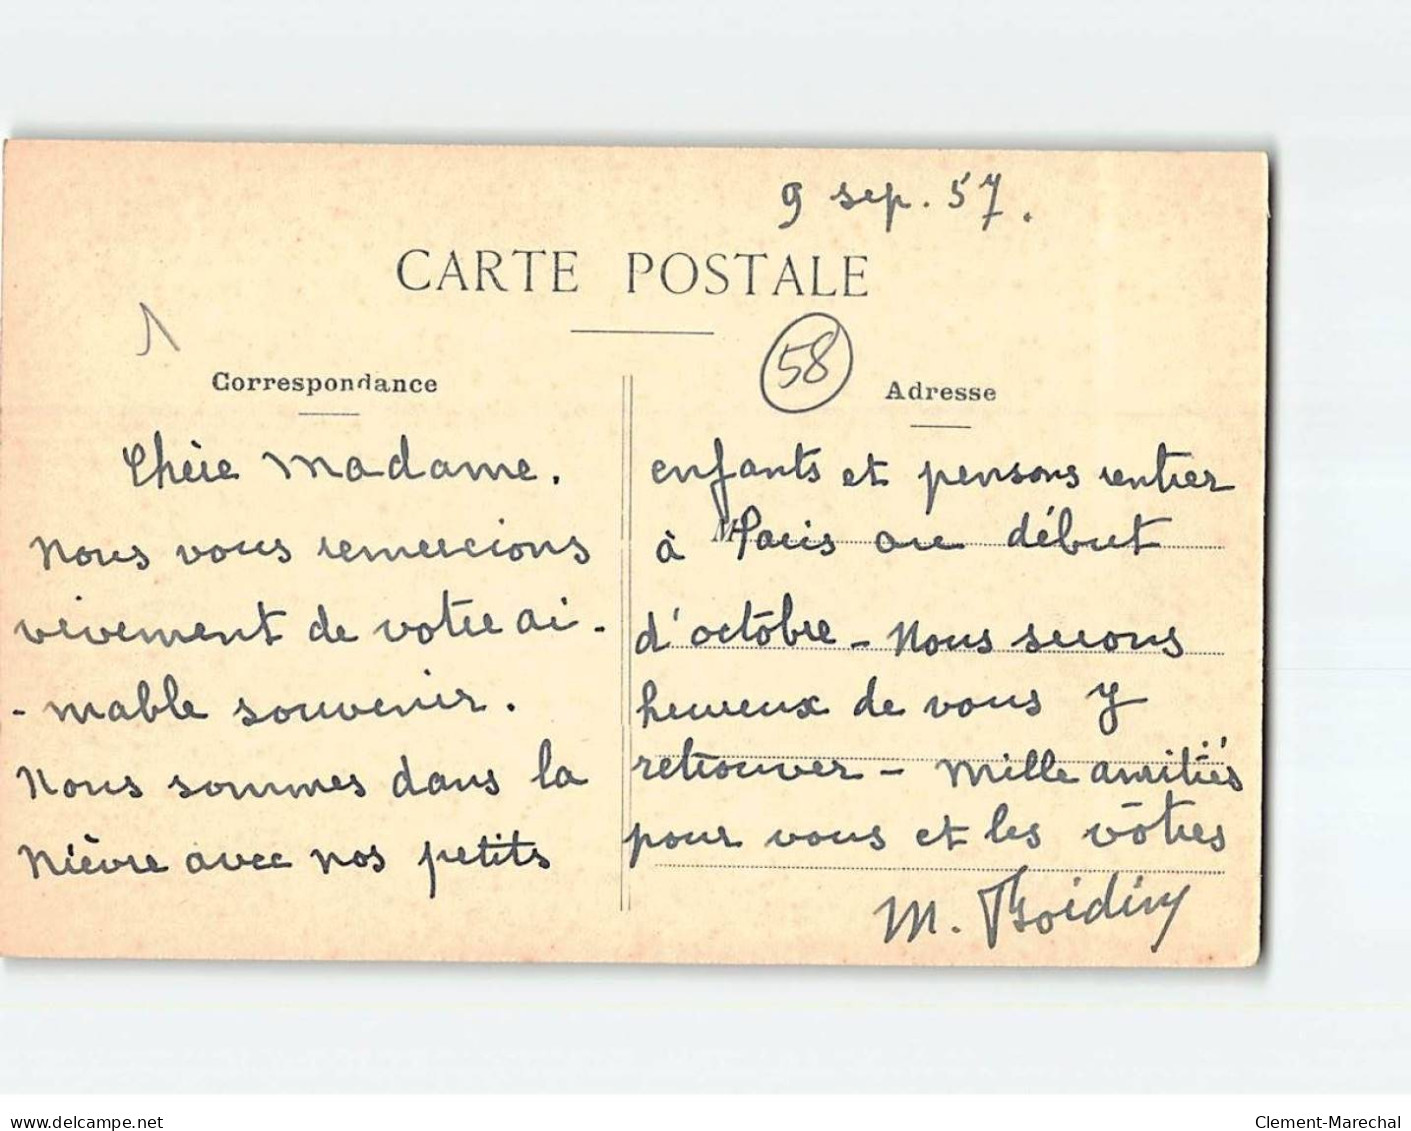 9 sep. 57.
CARTE POSTALE
58
Correspondance
Chère Madame.
Nous vous remercions
vivement de votre ai-
-mable souvenir.
Nous sommes dans la
Nièvre avec nos petits
Adresse
enfants et pensons rentrer
à Paris au début
d'octobre - Nous serons
heureux de vous y
retrouver - Mille amitiés
pour vous et les vôtres
M. Boidin
www.delcampe.net
Clement-Marechal